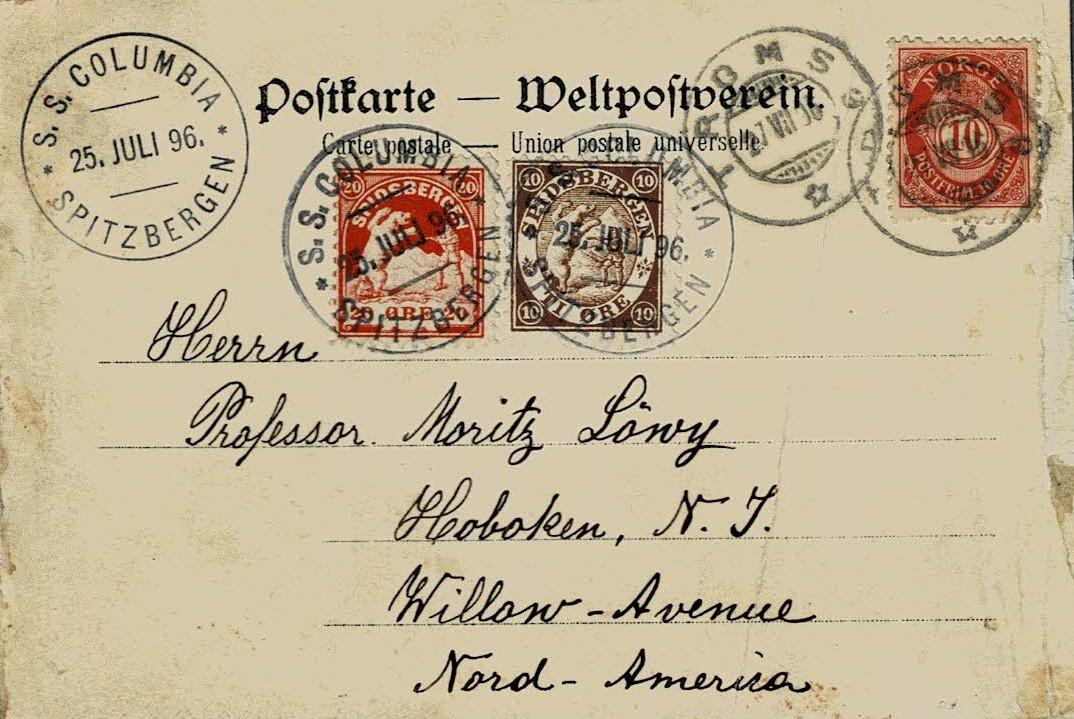 S.S. COLUMBIA
25. JULI 96.
SPITZBERGEN
Postkarte — Weltpostverein.
Carte postale — Union postale universelle.
S.S. COLUMBIA
25. JULI 96.
SPITZBERGEN
20 20
SPIDSBERGEN
20 ØRE 20
S.S. COLUMBIA
25. JULI 96.
SPITZBERGEN
10 10
SPIDSBERGEN
10 TI ØRE 10
TROMSØ
27 VII 96
TROMSØ
NORGE
10
POSTFRIM. 10 ØRE
Herrn
Professor Moritz Löwy
Hoboken, N. J.
Willow-Avenue
Nord-America